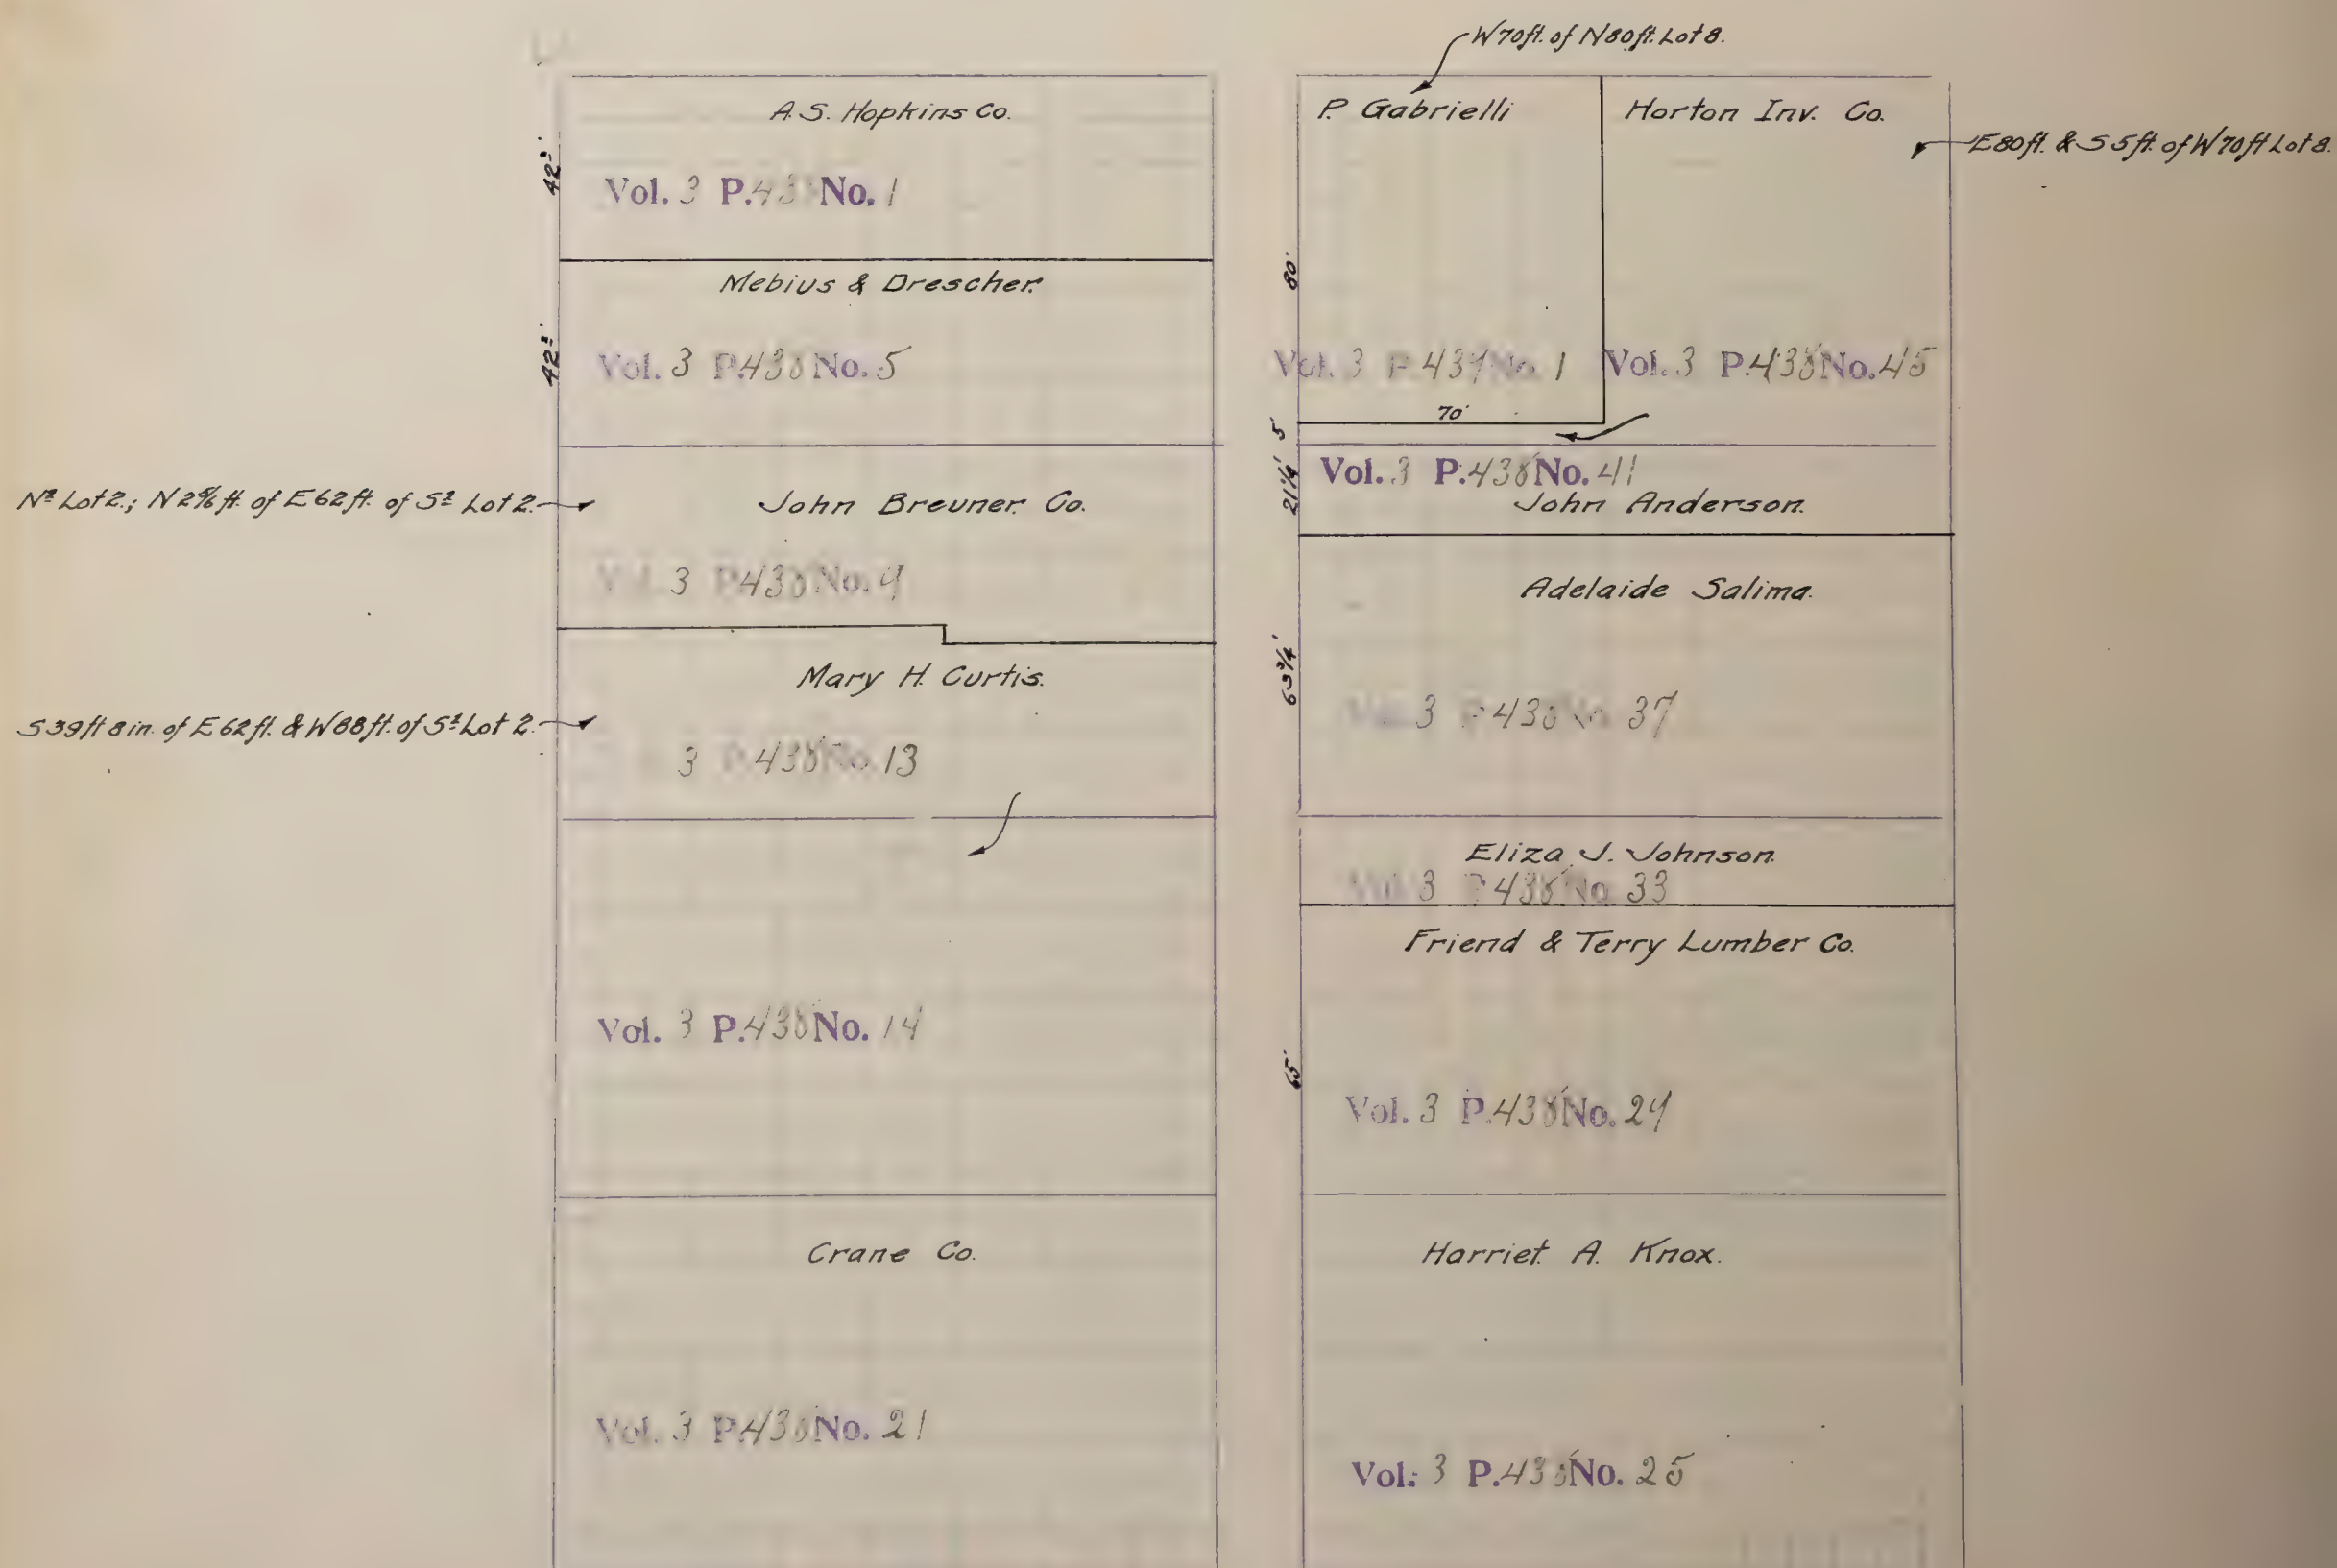 A.S. Hopkins Co.
Vol. 3 P. 43 No. 1
42'
Mebius & Drescher.
Vol. 3 P. 438 No. 5
42'
N½ Lot 2.; N 2⅚ ft. of E 62 ft. of S½ Lot 2.
John Breuner Co.
3 P. 438 No. 9
Mary H. Curtis.
S 39 ft 8 in. of E 62 ft. & W 88 ft. of S½ Lot 2.
3 P. 438 No. 13
Vol. 3 P. 438 No. 14
Crane Co.
Vol. 3 P. 438 No. 21
W 70 ft. of N 80 ft. Lot 8.
P. Gabrielli
Horton Inv. Co.
E 80 ft. & S 5 ft. of W 70 ft Lot 8.
80'
Vol. 3 P. 439 No. 1
Vol. 3 P. 438 No. 45
70'
5'
Vol. 3 P. 438 No. 41
21¼'
John Anderson.
Adelaide Salima.
63¾'
3 P. 438 No. 37
Eliza J. Johnson.
Vol. 3 P. 438 No. 33
Friend & Terry Lumber Co.
65'
Vol. 3 P. 438 No. 29
Harriet A. Knox.
Vol. 3 P. 438 No. 25